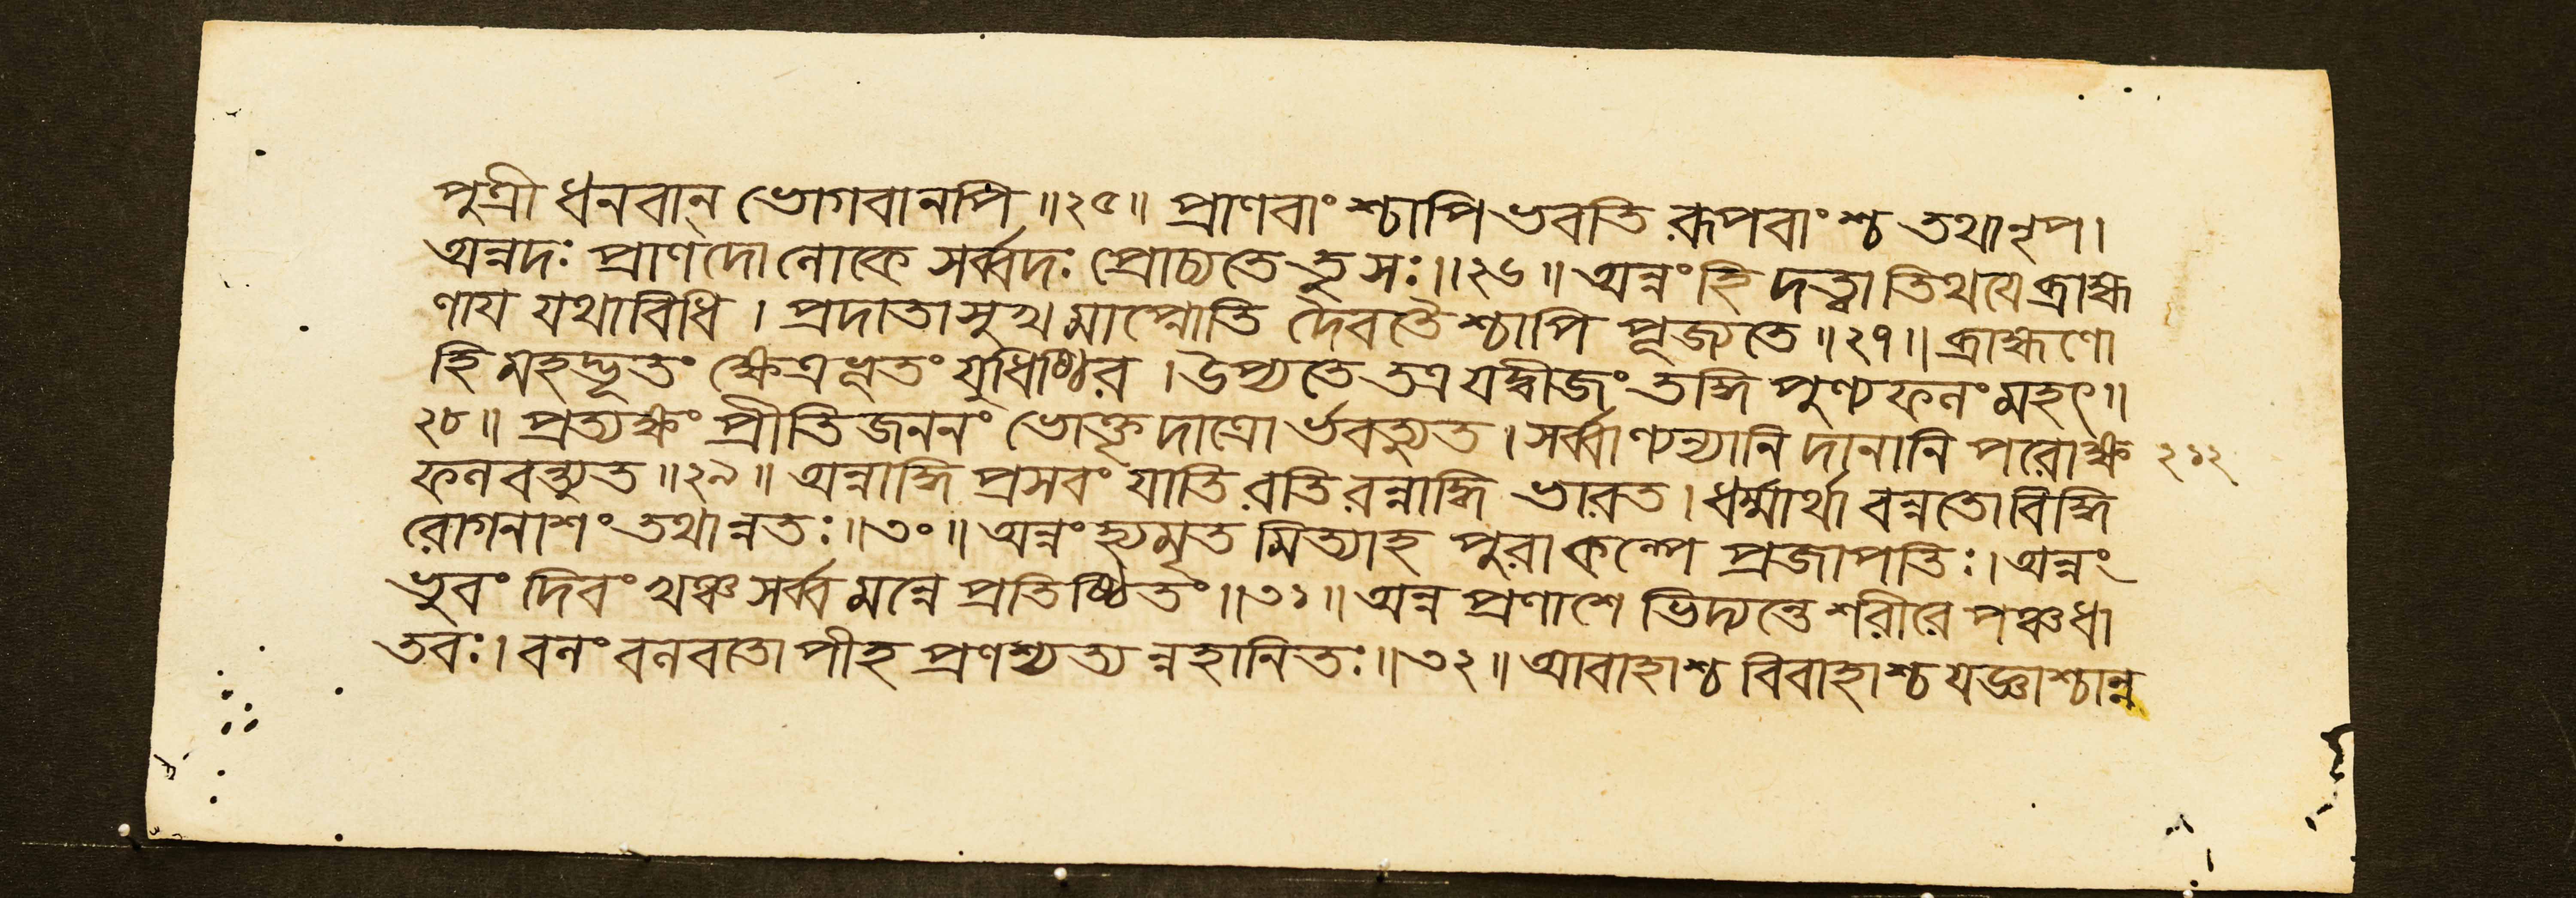 পুত্রী ধনবান্ ভোগবানপি॥২৫॥ প্রাণবাংশ্চাপি ভবতি রূপবাংশ্চ তথানৃপ।
অন্নদঃ প্রাণদোলোকে সর্ব্বদঃ প্রোচ্যতে তু সঃ॥২৬॥ অন্নং হি দত্ত্বাতিথযে ব্রাহ্ম
ণায যথাবিধি। প্রদাতা সুখমাপ্নোতি দৈবতৈশ্চাপি পূজ্যতে॥২৭॥ ব্রাহ্মণো
হি মহদ্ভূতং ক্ষেত্রভূতং যুধিষ্ঠির। উপ্যতে তত্র যদ্বীজং তদ্ধি পুণ্যফলং মহৎ॥
২৮॥ প্রত্যক্ষং প্রীতিজননং ভোক্তৃদাত্রোর্ভবত্যুত। সর্ব্বাণ্যন্যানি দানানি পরোক্ষ
ফলবন্ত্যুত॥২৯॥ অন্নাদ্ধি প্রসবং যাতি রতিরন্নাদ্ধি ভারত। ধর্ম্মার্থাবন্নতো বিদ্ধি
রোগনাশং তথান্নতঃ॥৩০॥ অন্নং হ্যমৃতমিত্যাহ পুরাকল্পে প্রজাপতিঃ। অন্নং
ভুবং দিবং খঞ্চ সর্ব্বমন্নে প্রতিষ্ঠিতং॥৩১॥ অন্নপ্রণাশে ভিদ্যন্তে শরীরে পঞ্চধা
তবঃ। বলং বলবতোপীহ প্রণশ্যত্যন্নহানিতঃ॥৩২॥ আবাহাশ্চ বিবাহাশ্চ যজ্ঞাশ্চান্ন
২১২